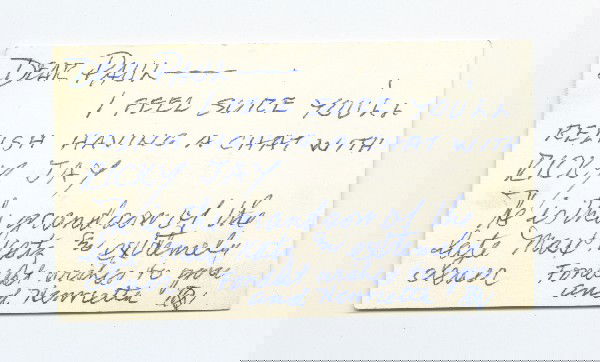 DEAR PAUL ----
I FEEL SURE YOU'LL
RELISH HAVING A CHAT WITH
RICKY JAY
He is the grandson of the
late Max Katz extremely
Fondest wishes to you
and